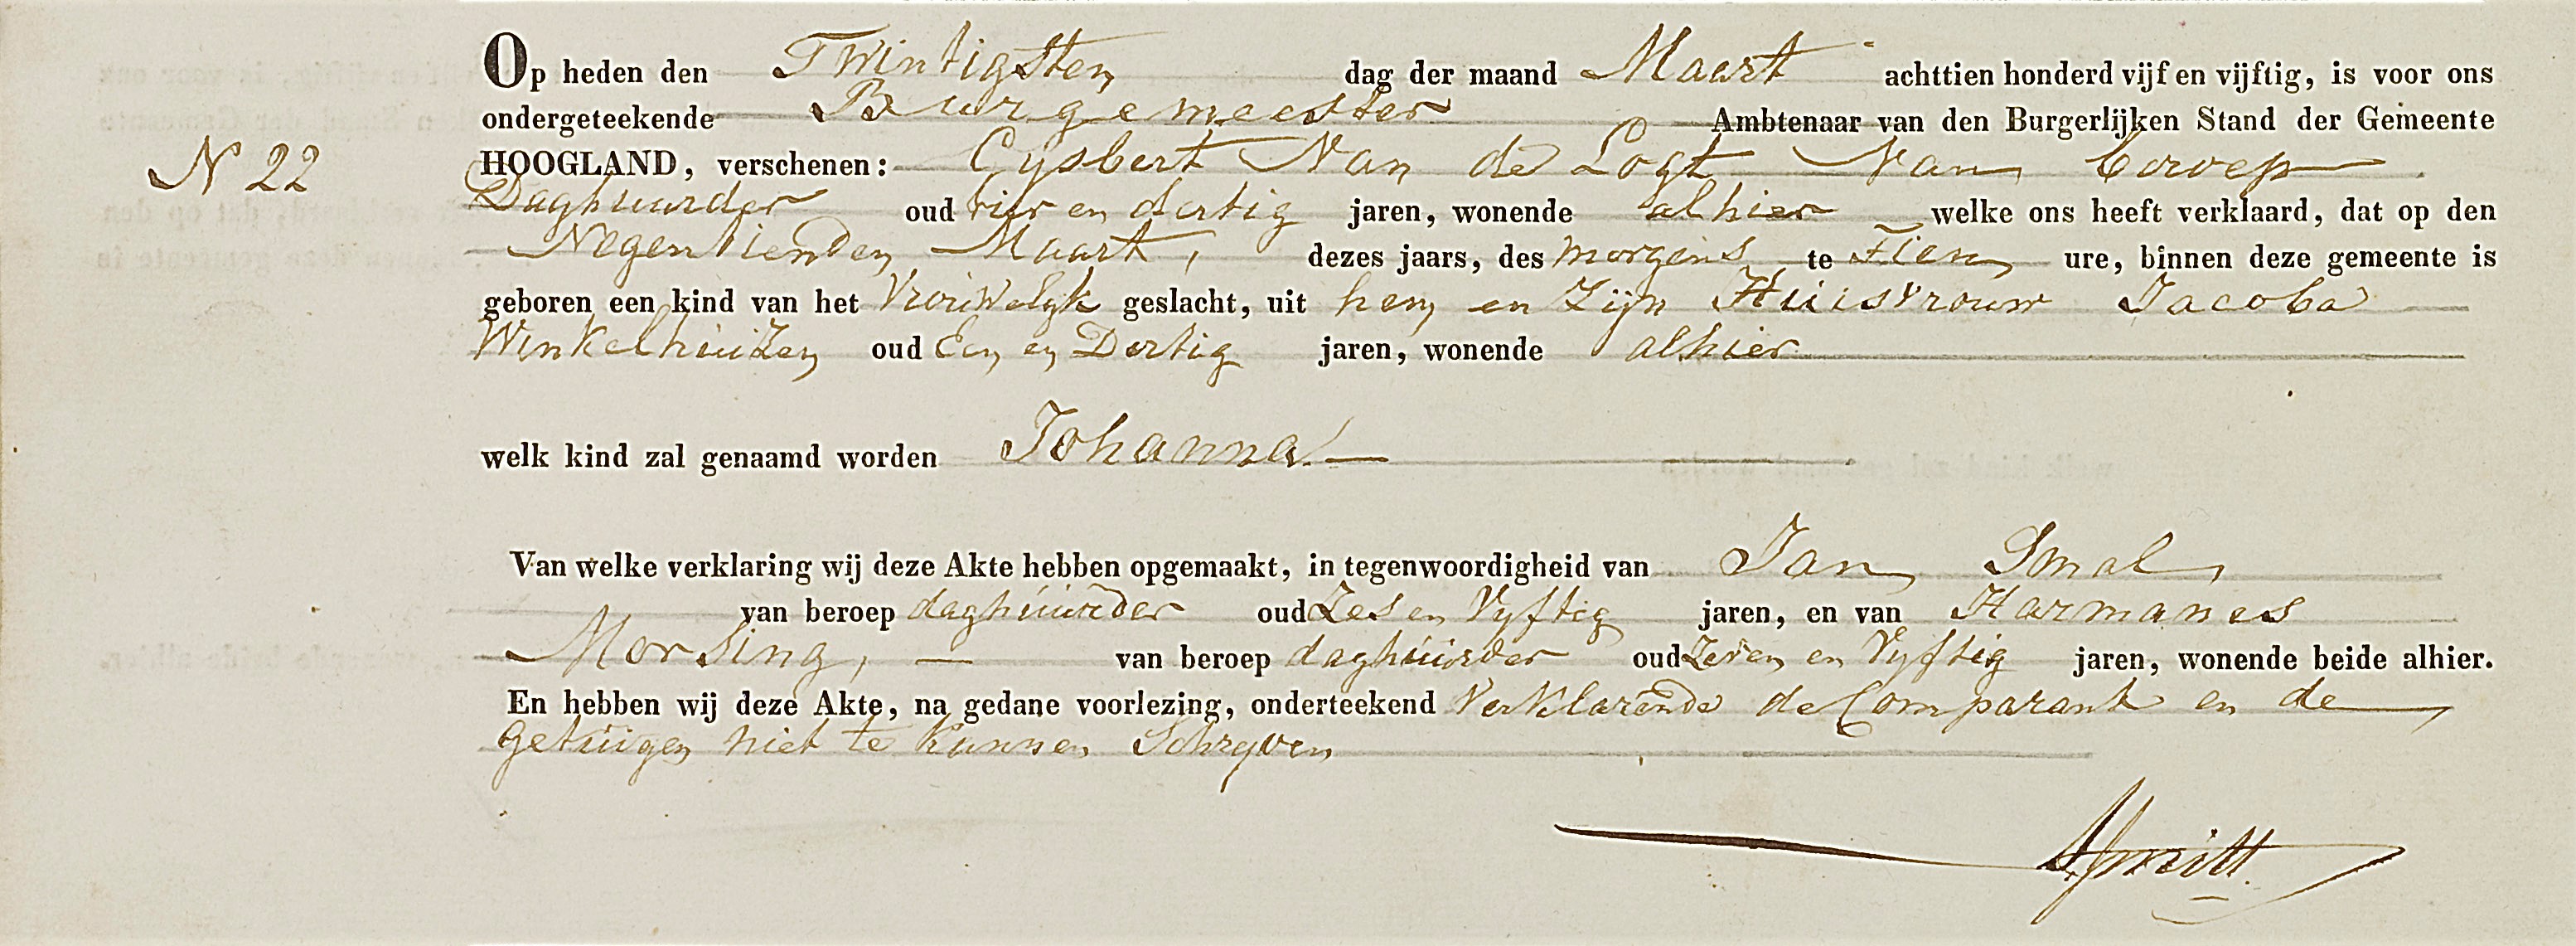 Op heden den Twintigsten dag der maand Maart achttien honderd vijf en vijftig, is voor ons
ondergeteekende Burgemeester Ambtenaar van den Burgerlijken Stand der Gemeente
N 22
HOOGLAND, verschenen: Gysbert Van de Logt Van beroep
Daghuurder oud vier en dertig jaren, wonende alhier welke ons heeft verklaard, dat op den
Negentienden Maart, dezes jaars, des morgens te Tien ure, binnen deze gemeente is
geboren een kind van het Vrouwelyk geslacht, uit hem en Zijn Huisvrouw Jacoba
Winkelhuizen oud Een en Dertig jaren, wonende alhier
welk kind zal genaamd worden Johanna
Van welke verklaring wij deze Akte hebben opgemaakt, in tegenwoordigheid van Jan Smal,
van beroep daghuurder oud Zes en Vyftig jaren, en van Harmanes
Morsing, van beroep daghuurder oud Zeven en Vyftig jaren, wonende beide alhier.
En hebben wij deze Akte, na gedane voorlezing, onderteekend Verklarende de Comparant en de
getuigen niet te kunnen Schryven